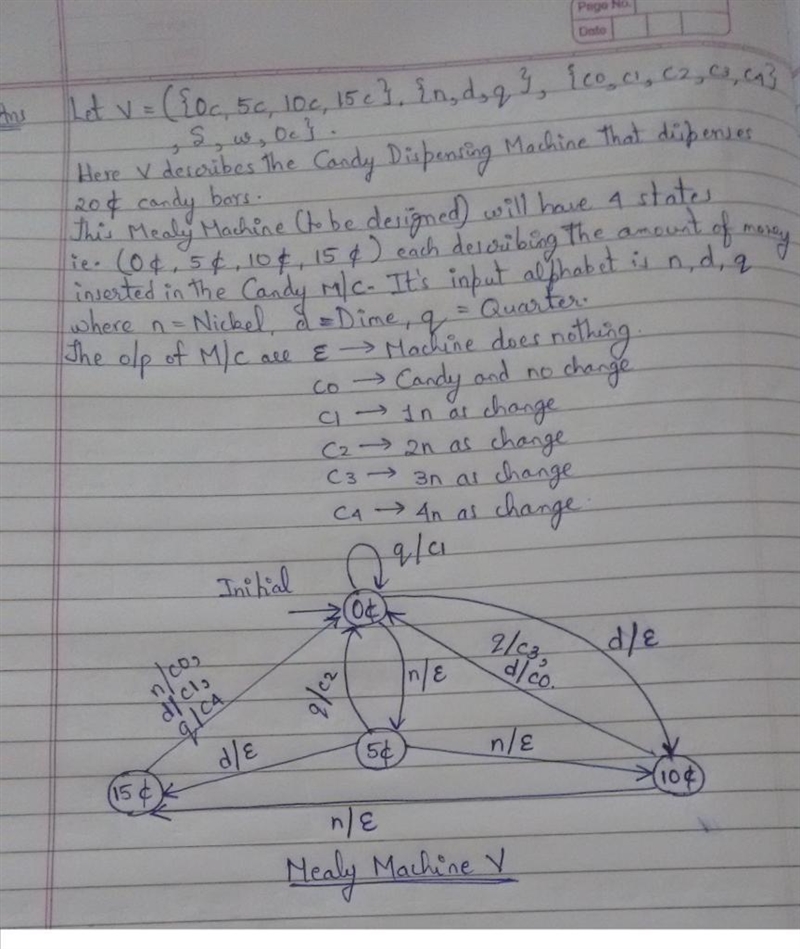 Page No.
Date
Ans Let V = ({0c, 5c, 10c, 15c}, {n, d, q}, {c0, c1, c2, c3, c4}
, S, w, 0c}.
Here V describes the Candy Dispensing Machine that dispenses
20¢ candy bars.
This Mealy Machine (to be designed) will have 4 states
ie. (0¢, 5¢, 10¢, 15¢) each describing the amount of money
inserted in the Candy M/C. It's input alphabet is n, d, q
where n = Nickel, d = Dime, q = Quarter.
The o/p of M/C are ε → Machine does nothing.
C0 → Candy and no change
C1 → 1n as change
C2 → 2n as change
C3 → 3n as change
C4 → 4n as change.
q/C1
Initial
0¢
n/C0,
d/C1,
q/C4
q/C2
n/ε
q/C3,
d/C0.
d/ε
d/ε
5¢
n/ε
15¢
10¢
n/ε
Mealy Machine V